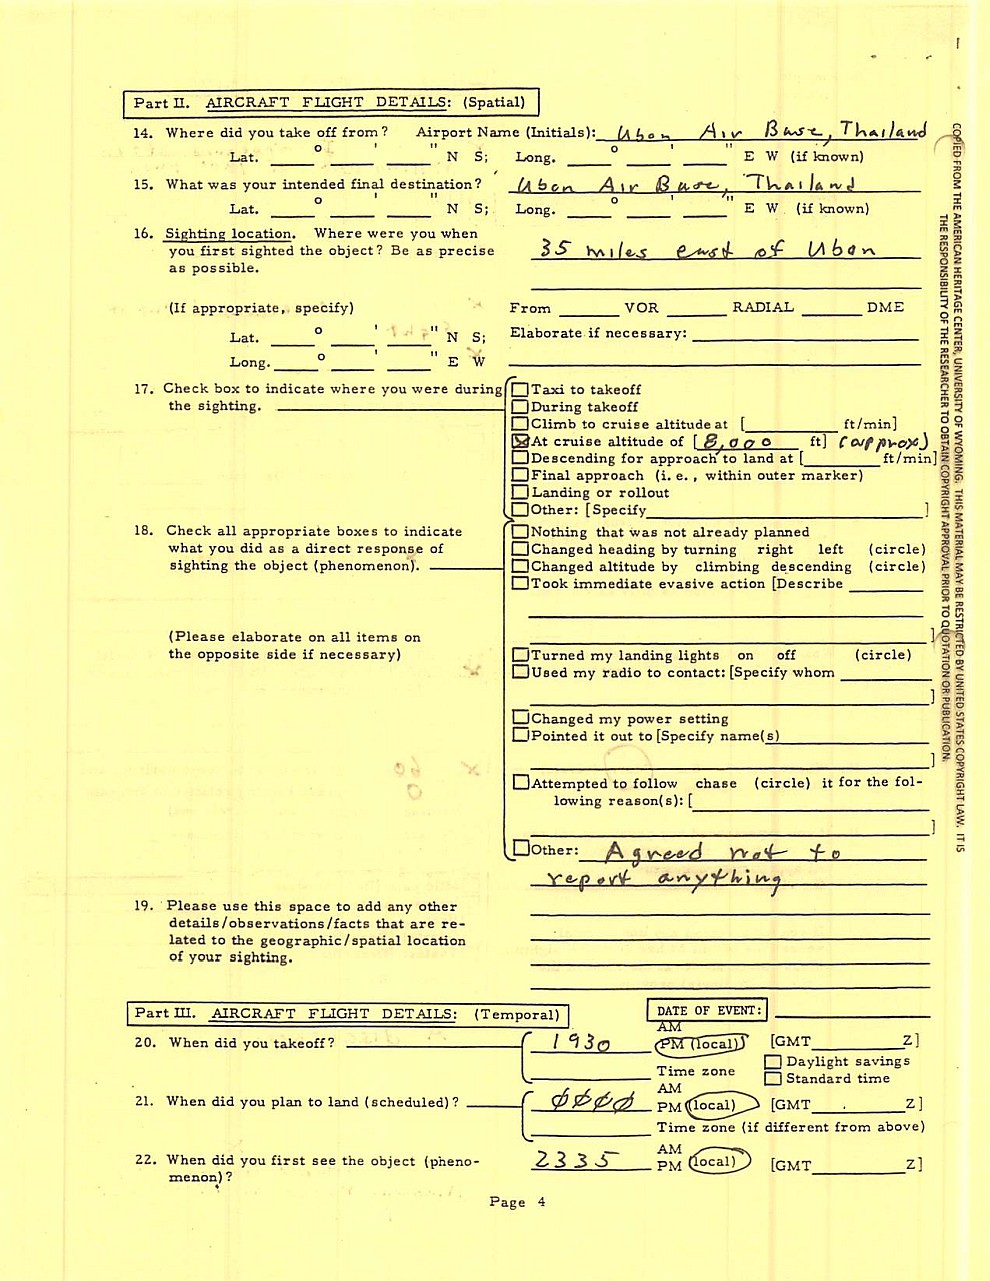 Part II. AIRCRAFT FLIGHT DETAILS: (Spatial)
14. Where did you take off from? Airport Name (Initials): Ubon Air Base, Thailand
Lat. ____ o ____ ' ____ " N S; Long. ____ o ____ ' ____ " E W (if known)
15. What was your intended final destination? Ubon Air Base, Thailand
Lat. ____ o ____ ' ____ " N S; Long. ____ o ____ ' ____ " E W (if known)
16. Sighting location. Where were you when
you first sighted the object? Be as precise
as possible.
35 miles east of Ubon
(If appropriate, specify) From ______ VOR ______ RADIAL ______ DME
Lat. ____ o ____ ' ____ " N S; Elaborate if necessary:
Long. ____ o ____ ' ____ " E W
17. Check box to indicate where you were during
the sighting.
☐ Taxi to takeoff
☐ During takeoff
☐ Climb to cruise altitude at [________ ft/min]
☒ At cruise altitude of [8,000 ft] (approx)
☐ Descending for approach to land at [________ ft/min]
☐ Final approach (i. e., within outer marker)
☐ Landing or rollout
☐ Other: [Specify________]
18. Check all appropriate boxes to indicate
what you did as a direct response of
sighting the object (phenomenon).
(Please elaborate on all items on
the opposite side if necessary)
☐ Nothing that was not already planned
☐ Changed heading by turning right left (circle)
☐ Changed altitude by climbing descending (circle)
☐ Took immediate evasive action [Describe ________
________]
☐ Turned my landing lights on off (circle)
☐ Used my radio to contact: [Specify whom ________
________]
☐ Changed my power setting
☐ Pointed it out to [Specify name(s)________
________]
☐ Attempted to follow chase (circle) it for the fol-
lowing reason(s): [________
________]
☐ Other: Agreed not to
report anything
19. Please use this space to add any other
details/observations/facts that are re-
lated to the geographic/spatial location
of your sighting.
Part III. AIRCRAFT FLIGHT DETAILS: (Temporal) DATE OF EVENT:
20. When did you takeoff? 1930 AM PM (local) [GMT________Z]
Time zone
☐ Daylight savings
☐ Standard time
21. When did you plan to land (scheduled)? 0000 AM PM (local) [GMT________Z]
Time zone (if different from above)
22. When did you first see the object (pheno-
menon)?
2335 AM PM (local) [GMT________Z]
Page 4
COPIED FROM THE AMERICAN HERITAGE CENTER, UNIVERSITY OF WYOMING. THIS MATERIAL MAY BE RESTRICTED BY UNITED STATES COPYRIGHT LAW. IT IS
THE RESPONSIBILITY OF THE RESEARCHER TO OBTAIN COPYRIGHT APPROVAL PRIOR TO QUOTATION OR PUBLICATION.